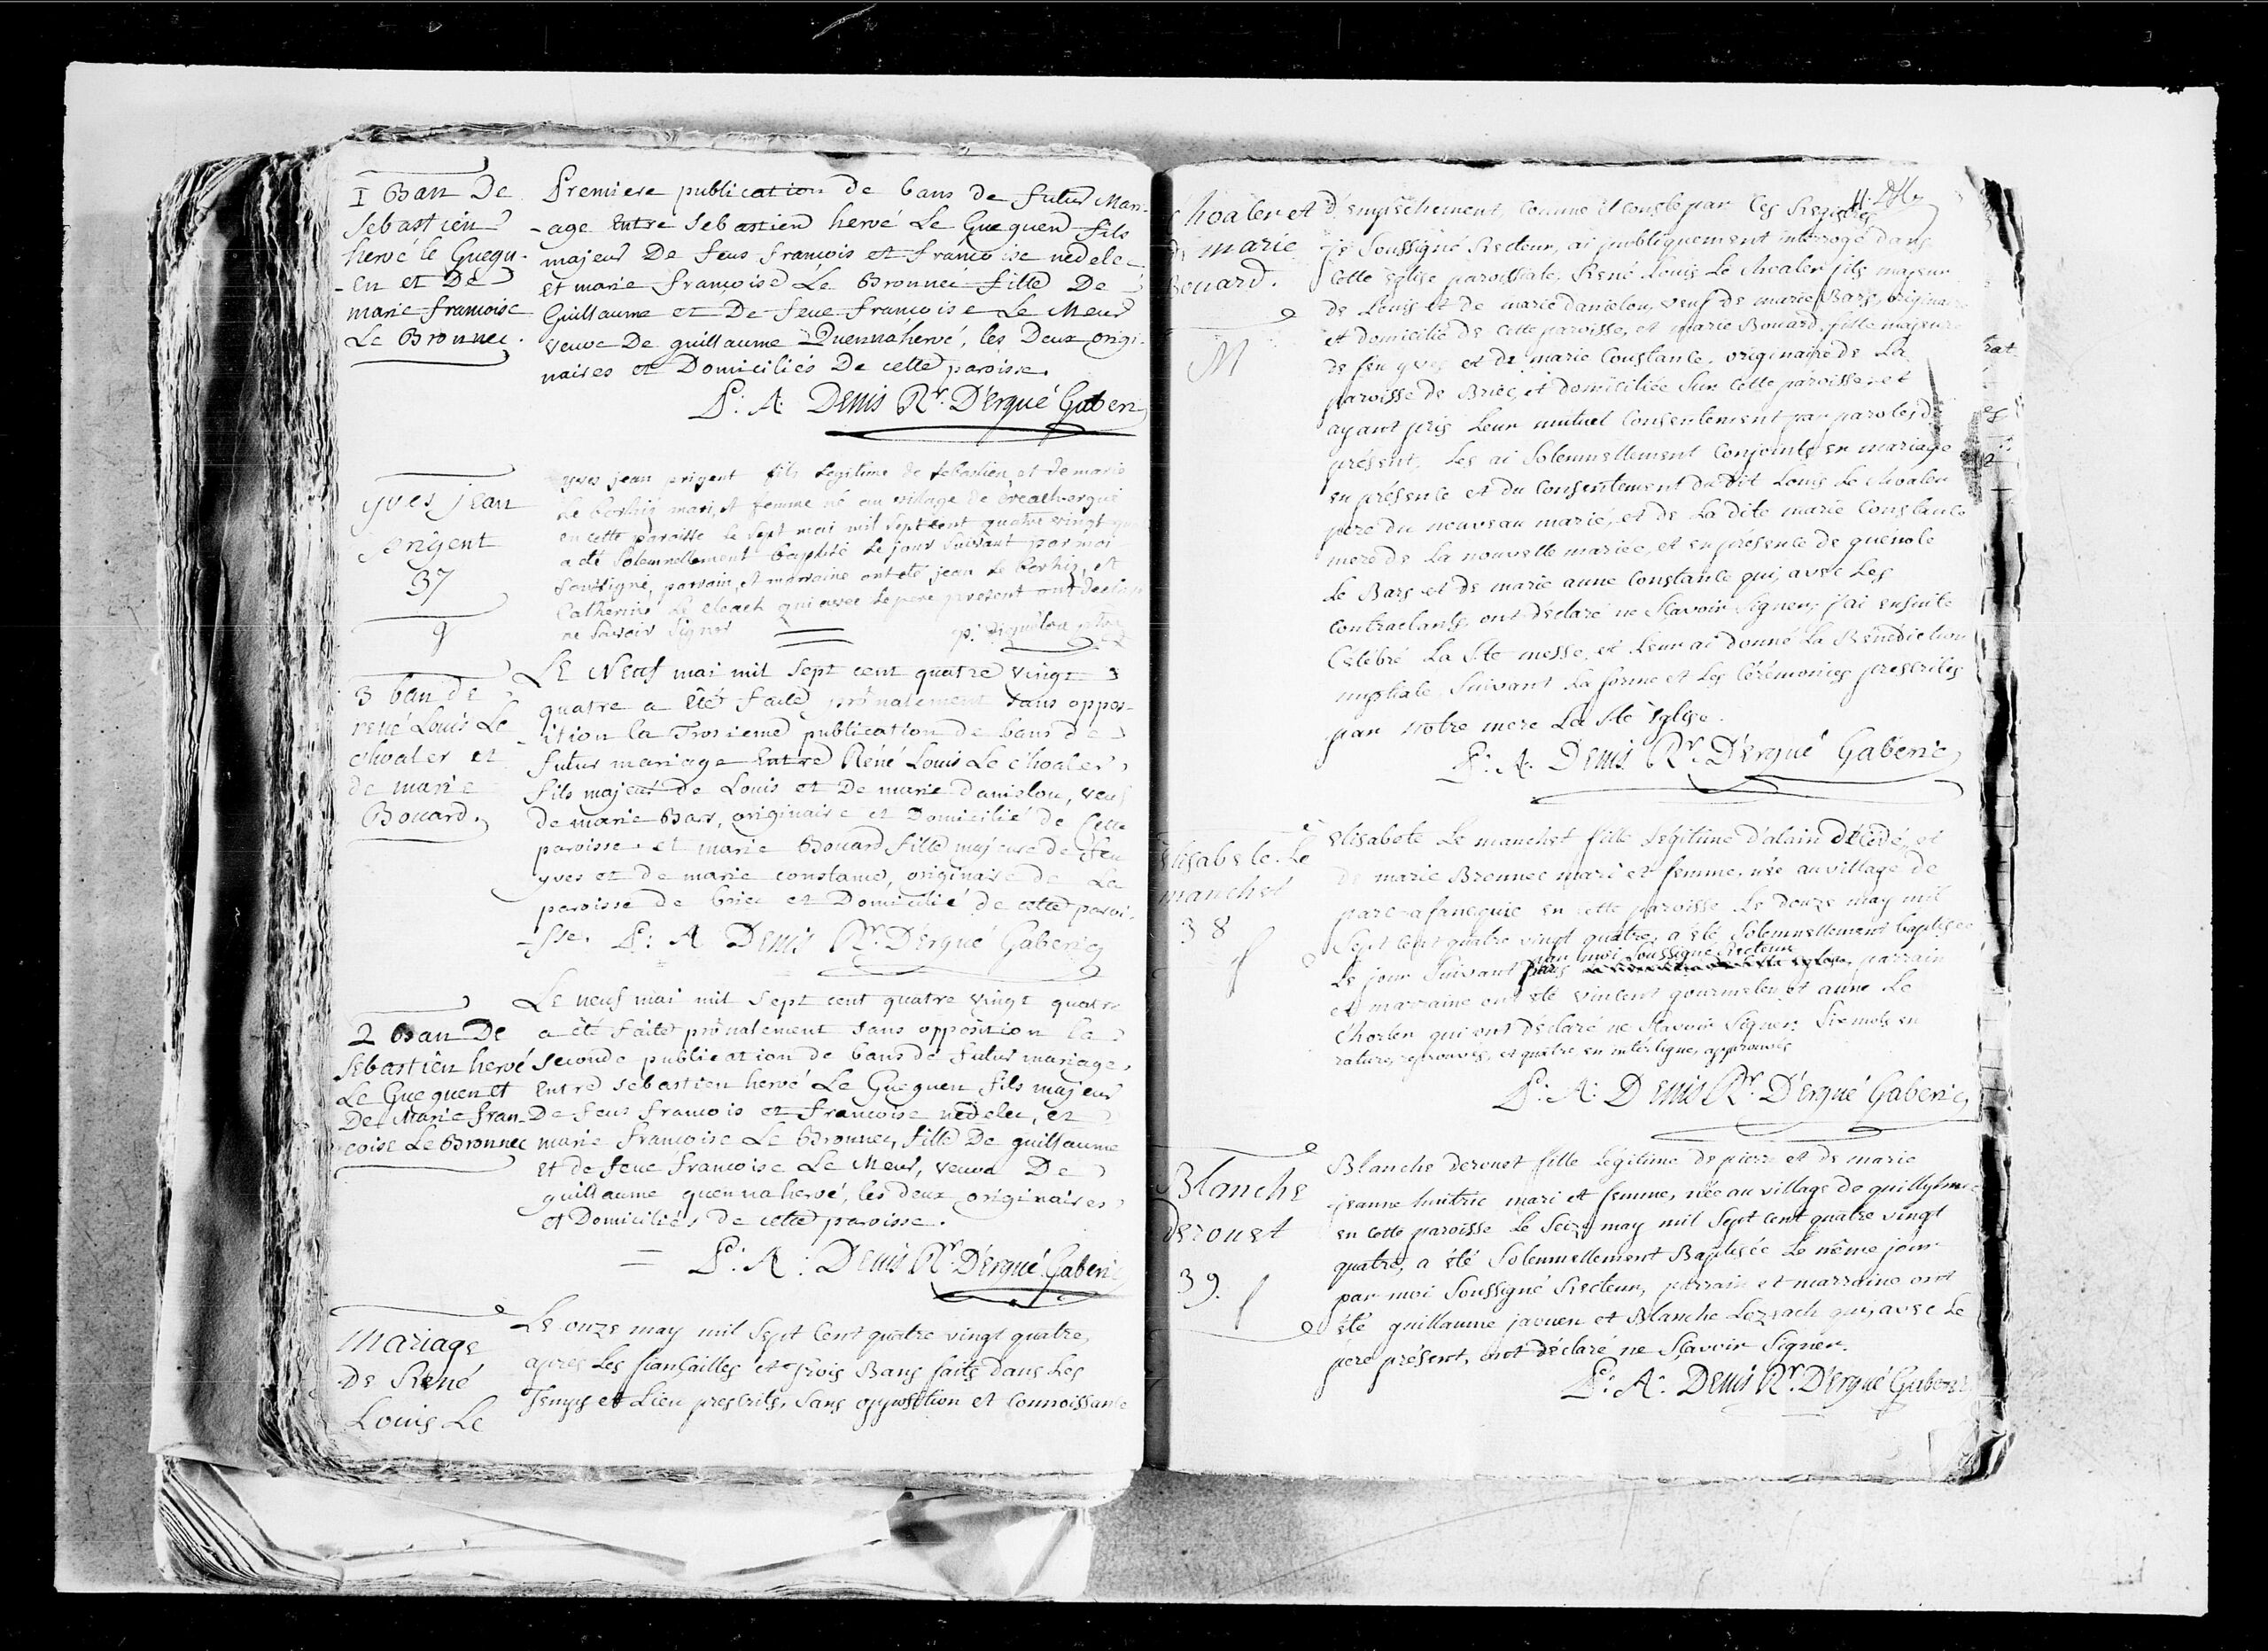 1 Ban De
Sebastien
hervé le Guegu-
-en et De
marie francoise
Le Bronnec.
Premiere publication de bans de futur Mari-
-age Entre Sebastien hervé Le Gueguen fils
majeur De feus francois et francoise nedelec
et marie francoise Le Bronnec fille De
Guillaume et De feue francoise Le Meur
veuve De guillaume Quennahervé, les Deux origi-
naires et Domiciliés De cette paroisse.
P: A: Denis Rr. D'Ergué Gaberic
yves jean
prigent
37
g
yves jean prigent fils legitime de sebastien et de marie
le borhis mari et femme né au village de
en cette paroisse le sept mai mil sept cent quatre vingt
a eté solemnellement baptisé le jour suivant par moi
soussigné, parrain, et marraine ont eté jean le borhis, et
Catherine le cleach qui avec le pere present ont declaré
ne savoir signer
3 ban de
rené Louis Le
c'hoaler et
de marie
Bouard.
Le Neuf mai mil sept cent quatre vingt
quatre a été faite prônalement sans oppos-
-ition la Troisieme publication de bans de
futur mariage Entre Réné Louis Le c'hoaler,
fils majeur de Louis et De marie danielou, veuf
de marie Bars, originaire et Domicilié de Cette
paroisse. et marie Bouard fille majeure de feu
yves et de marie constance, originaire de La
paroisse de briec et Domicilié de cette paroi-
-sse. P: A Denis Rr. D'Ergué Gaberic
2 Ban De
Sébastien hervé
Le Gueguen et
De Marie fran-
coise Le Bronnec
Le neuf mai mil sept cent quatre vingt quatre
a été faite prônalement sans opposition la
seconde publication de bans de futur mariage,
Entre Sebastien hervé Le Gueguen fils majeur
De feus francois et francoise nedelec, et
marie francoise Le Bronnec, fille De guillaume
et de feue francoise Le Meur, veuve De
guillaume quennahervé, les deux originaires
et Domiciliés de cette paroisse.
= P: A: Denis Rr. D'Ergué Gaberic
Mariage
De René
Louis Le
Le onze may mil sept cent quatre vingt quatre,
apres les fiançailles et trois Bans faits dans les
Temps et Lieu prescrits, sans opposition et connoissance
c'hoaler et
de marie
Bouard.
M
d'empêchement, comme il conste par les Registres
je soussigné Recteur, ai publiquement interrogé dans
cette Eglise paroissiale René Louis Le c'hoaler fils majeur
de Louis et de marie danielou, veuf de marie Bars, originaire
et domicilié de cette paroisse, et marie Bouard, fille majeure
de feu yves et de marie Constance, originaire de La
paroisse de Briec, et domiciliée sur cette paroisse, et
ayant pris leur mutuel consentement par paroles de
présent, les ai solemnellement conjoints en mariage
en présence et du consentement dudit Louis Le c'hoaler
pere du nouveau marié, et de La dite marie Constance
mere de La nouvelle mariée, et en presence de guénolé
Le Bars et de marie anne Constance qui, avec les
contractants, ont déclaré ne sçavoir signer, j'ai ensuite
célébré La Ste messe, et leur ai donné La Bénédiction
nuptiale suivant La forme et les cérémonies prescrites
par Notre mere La Ste Eglise.
P: A: Denis Rr. D'Ergué Gaberic
Elisabete Le
manchet
38
f
Elisabete Le manchet fille legitime d'alain décédé, et
de marie Bronnec mari et femme, née au village de
parc-afaneguic en cette paroisse Le douze may mil
sept cent quatre vingt quatre, a été solemnellement baptisée
par moi soussigné Recteur
Le jour suivant parrain
et marraine ont été vincent gourmelen et anne Le
c'horler qui ont déclaré ne sçavoir signer. Six mots en
rature, reprouvés, et quatre en interligne, approuvés
P: A: Denis Rr. D'Ergué Gaberic
Blanche
derouet
39.
f
Blanche derouet fille legitime de pierre et de marie
jeanne huitric mari et femme, née au village de
en cette paroisse Le seize may mil sept cent quatre vingt
quatre, a été solemnellement Baptisée Le même jour
par moi soussigné Recteur, parrain et marraine ont
été guillaume jaouen et Blanche Lozeach qui, avec Le
pere présent, ont déclaré ne sçavoir signer.
P: A: Denis Rr. D'Ergué Gaberic